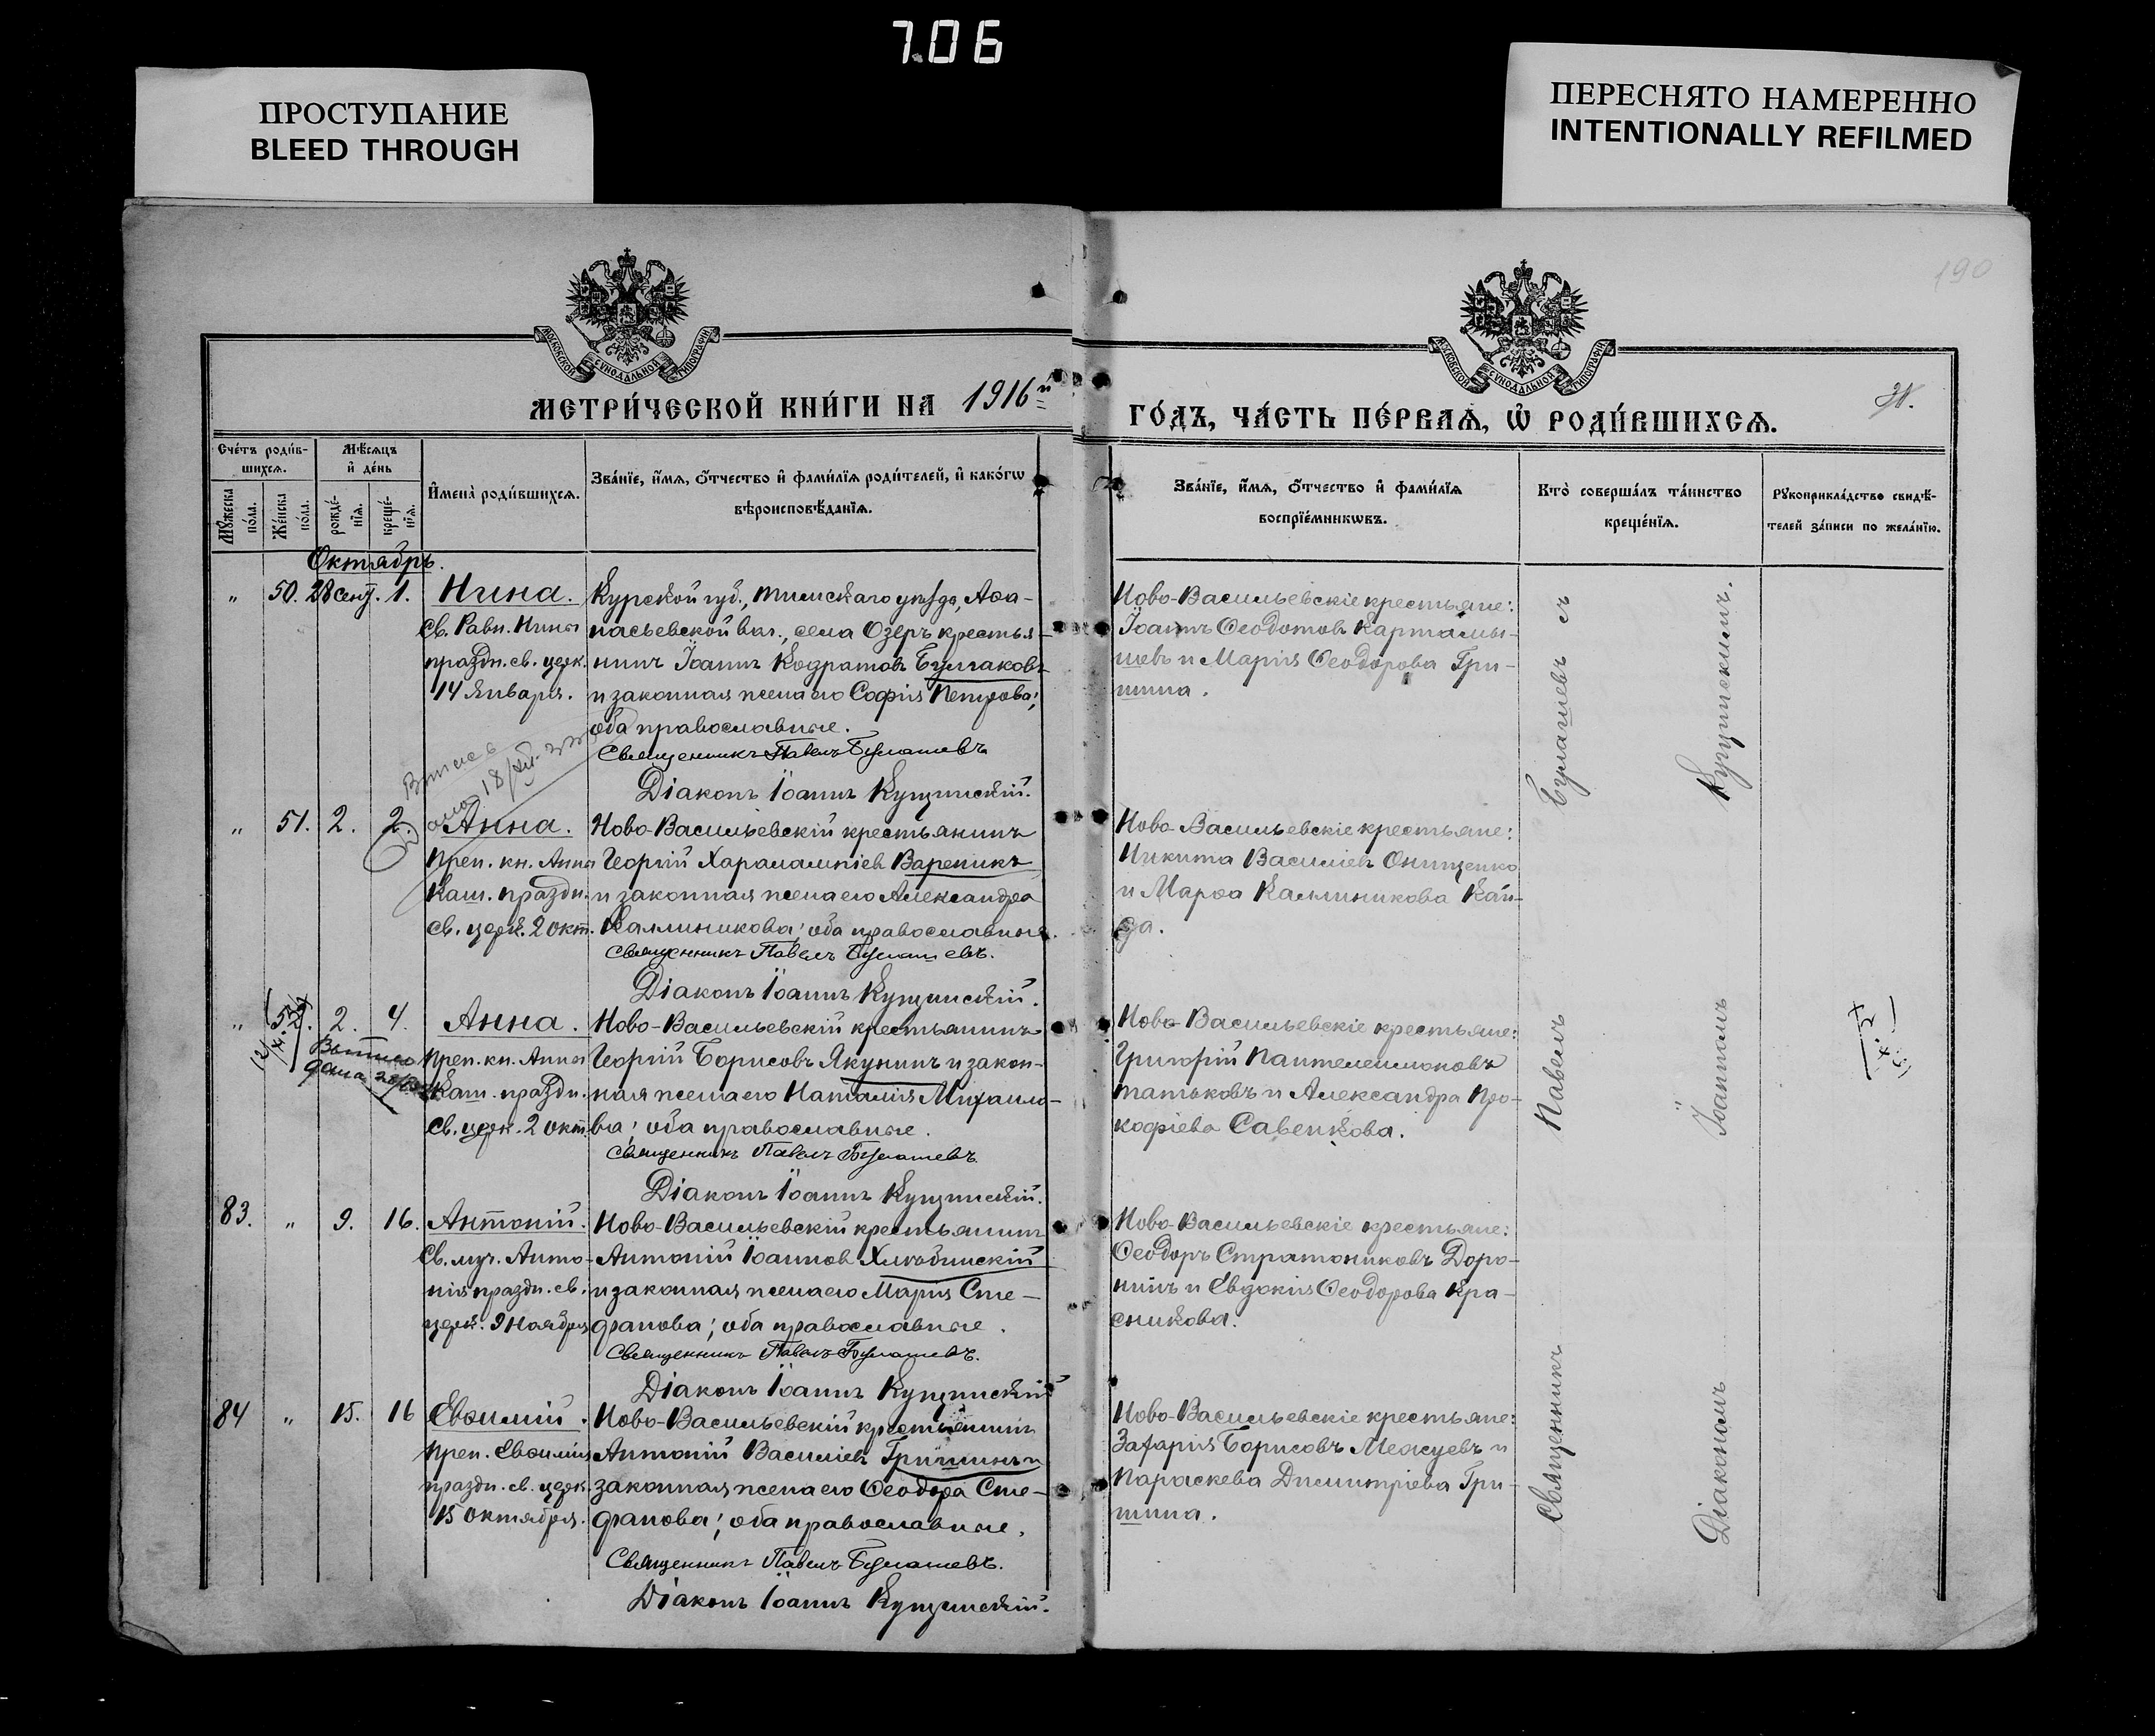 7.06
ПРОСТУПАНИЕ
BLEED THROUGH
ПЕРЕСНЯТО НАМЕРЕННО
INTENTIONALLY REFILMED
190
МОСКОВСКОЙ СѴНОДАЛЬНОЙ ТИПОГРАФІИ
МОСКОВСКОЙ СѴНОДАЛЬНОЙ ТИПОГРАФІИ
МЕТРИ́ЧЕСКОЙ КНИ́ГИ НА 1916й
ГО́ДЪ, ЧА́СТЬ ПЕ́РВАѦ, Ѡ҆ РОДИ́ВШИХСѦ.
Сче́тъ роди́в-
шихсѧ.
Мꙋ́жеска по́ла.
Же́нска по́ла.
Мѣ́сѧцъ
и҆ де́нь
рожде́-
нїѧ.
креще́-
нїѧ.
И҆мена̀ роди́вшихсѧ.
Зва́нїе, и҆́мѧ, ѻ҆́тчество и҆ фами́лїѧ роди́телей, и҆ како́гѡ
вѣроисповѣ́данїѧ.
Зва́нїе, и҆́мѧ, ѻ҆́тчество и҆ фами́лїѧ
воспрїе́мникѡвъ.
Кто̀ соверша́лъ та́инство
креще́нїѧ.
Рꙋкоприкла́дство свидѣ́-
телей за́писи по жела́нїю.
Октябрь.
" 50. 28 сент. 1. Нина.
Св. Равн. Нина
праздн. св. церк.
14 Января.
Курской губ., Тимскаго уѣзда, Аѳа-
насьевской вол., села Озеръ крестья-
нинъ Іоаннъ Кодратовъ Булгаковъ
и законная жена его Софія Петрова;
оба православные.
Священникъ Павелъ Булашевъ
Діаконъ Іоаннъ Кущинскій.
Ново-Васильевскіе крестьяне:
Іоаннъ Ѳеодотовъ Картамы-
шевъ и Марія Ѳеодорова Гри-
шина.
" 51. 2. 2. Анна.
Преп. кн. Анна
Каш. праздн.
св. церк. 2 окт.
Ново-Васильевскій крестьянинъ
Георгій Харалампіевъ Вареникъ
и законная жена его Александра
Каллиникова; оба православные.
Священникъ Павелъ Булашевъ.
Діаконъ Іоаннъ Кущинскій.
Ново-Васильевскіе крестьяне:
Никита Василіевъ Онищенко
и Марѳа Каллиникова Кай-
да.
" 52. 2. 4. Анна.
Преп. кн. Анна
Каш. праздн.
св. церк. 2 окт.
Ново-Васильевскій крестьянинъ
Георгій Борисовъ Якунинъ и закон-
ная жена его Наталія Михаило-
ва; оба православные.
Священникъ Павелъ Булашевъ.
Діаконъ Іоаннъ Кущинскій.
Ново-Васильевскіе крестьяне:
Григорій Пантелеимоновъ
Татьковъ и Александра Про-
кофіева Савенкова.
83. " 9. 16. Антоній.
Св. муч. Анто-
нія праздн. св.
церк. 9 Ноября
Ново-Васильевскій крестьянинъ
Антоній Іоанновъ Хлѣбинскій
и законная жена его Марія Сте-
фанова; оба православные.
Священникъ Павелъ Булашевъ.
Діаконъ Іоаннъ Кущинскій
Ново-Васильевскіе крестьяне:
Ѳеодоръ Стратониковъ Доро-
нинъ и Евдокія Ѳеодорова Кра-
сникова.
84 " 15. 16 Евѳимій.
Преп. Евѳимія
праздн. св. церк.
15 Октября.
Ново-Васильевскій крестьянинъ
Антоній Василіевъ Гришинъ и
законная жена его Ѳеодора Сте-
фанова; оба православные.
Священникъ Павелъ Булашевъ.
Діаконъ Іоаннъ Кущинскій.
Ново-Васильевскіе крестьяне:
Захарія Борисовъ Межуевъ и
Параскева Димитріева Гри-
шина.
Священникъ Павелъ Булашевъ съ
Діакономъ Іоанномъ Кущинскимъ.